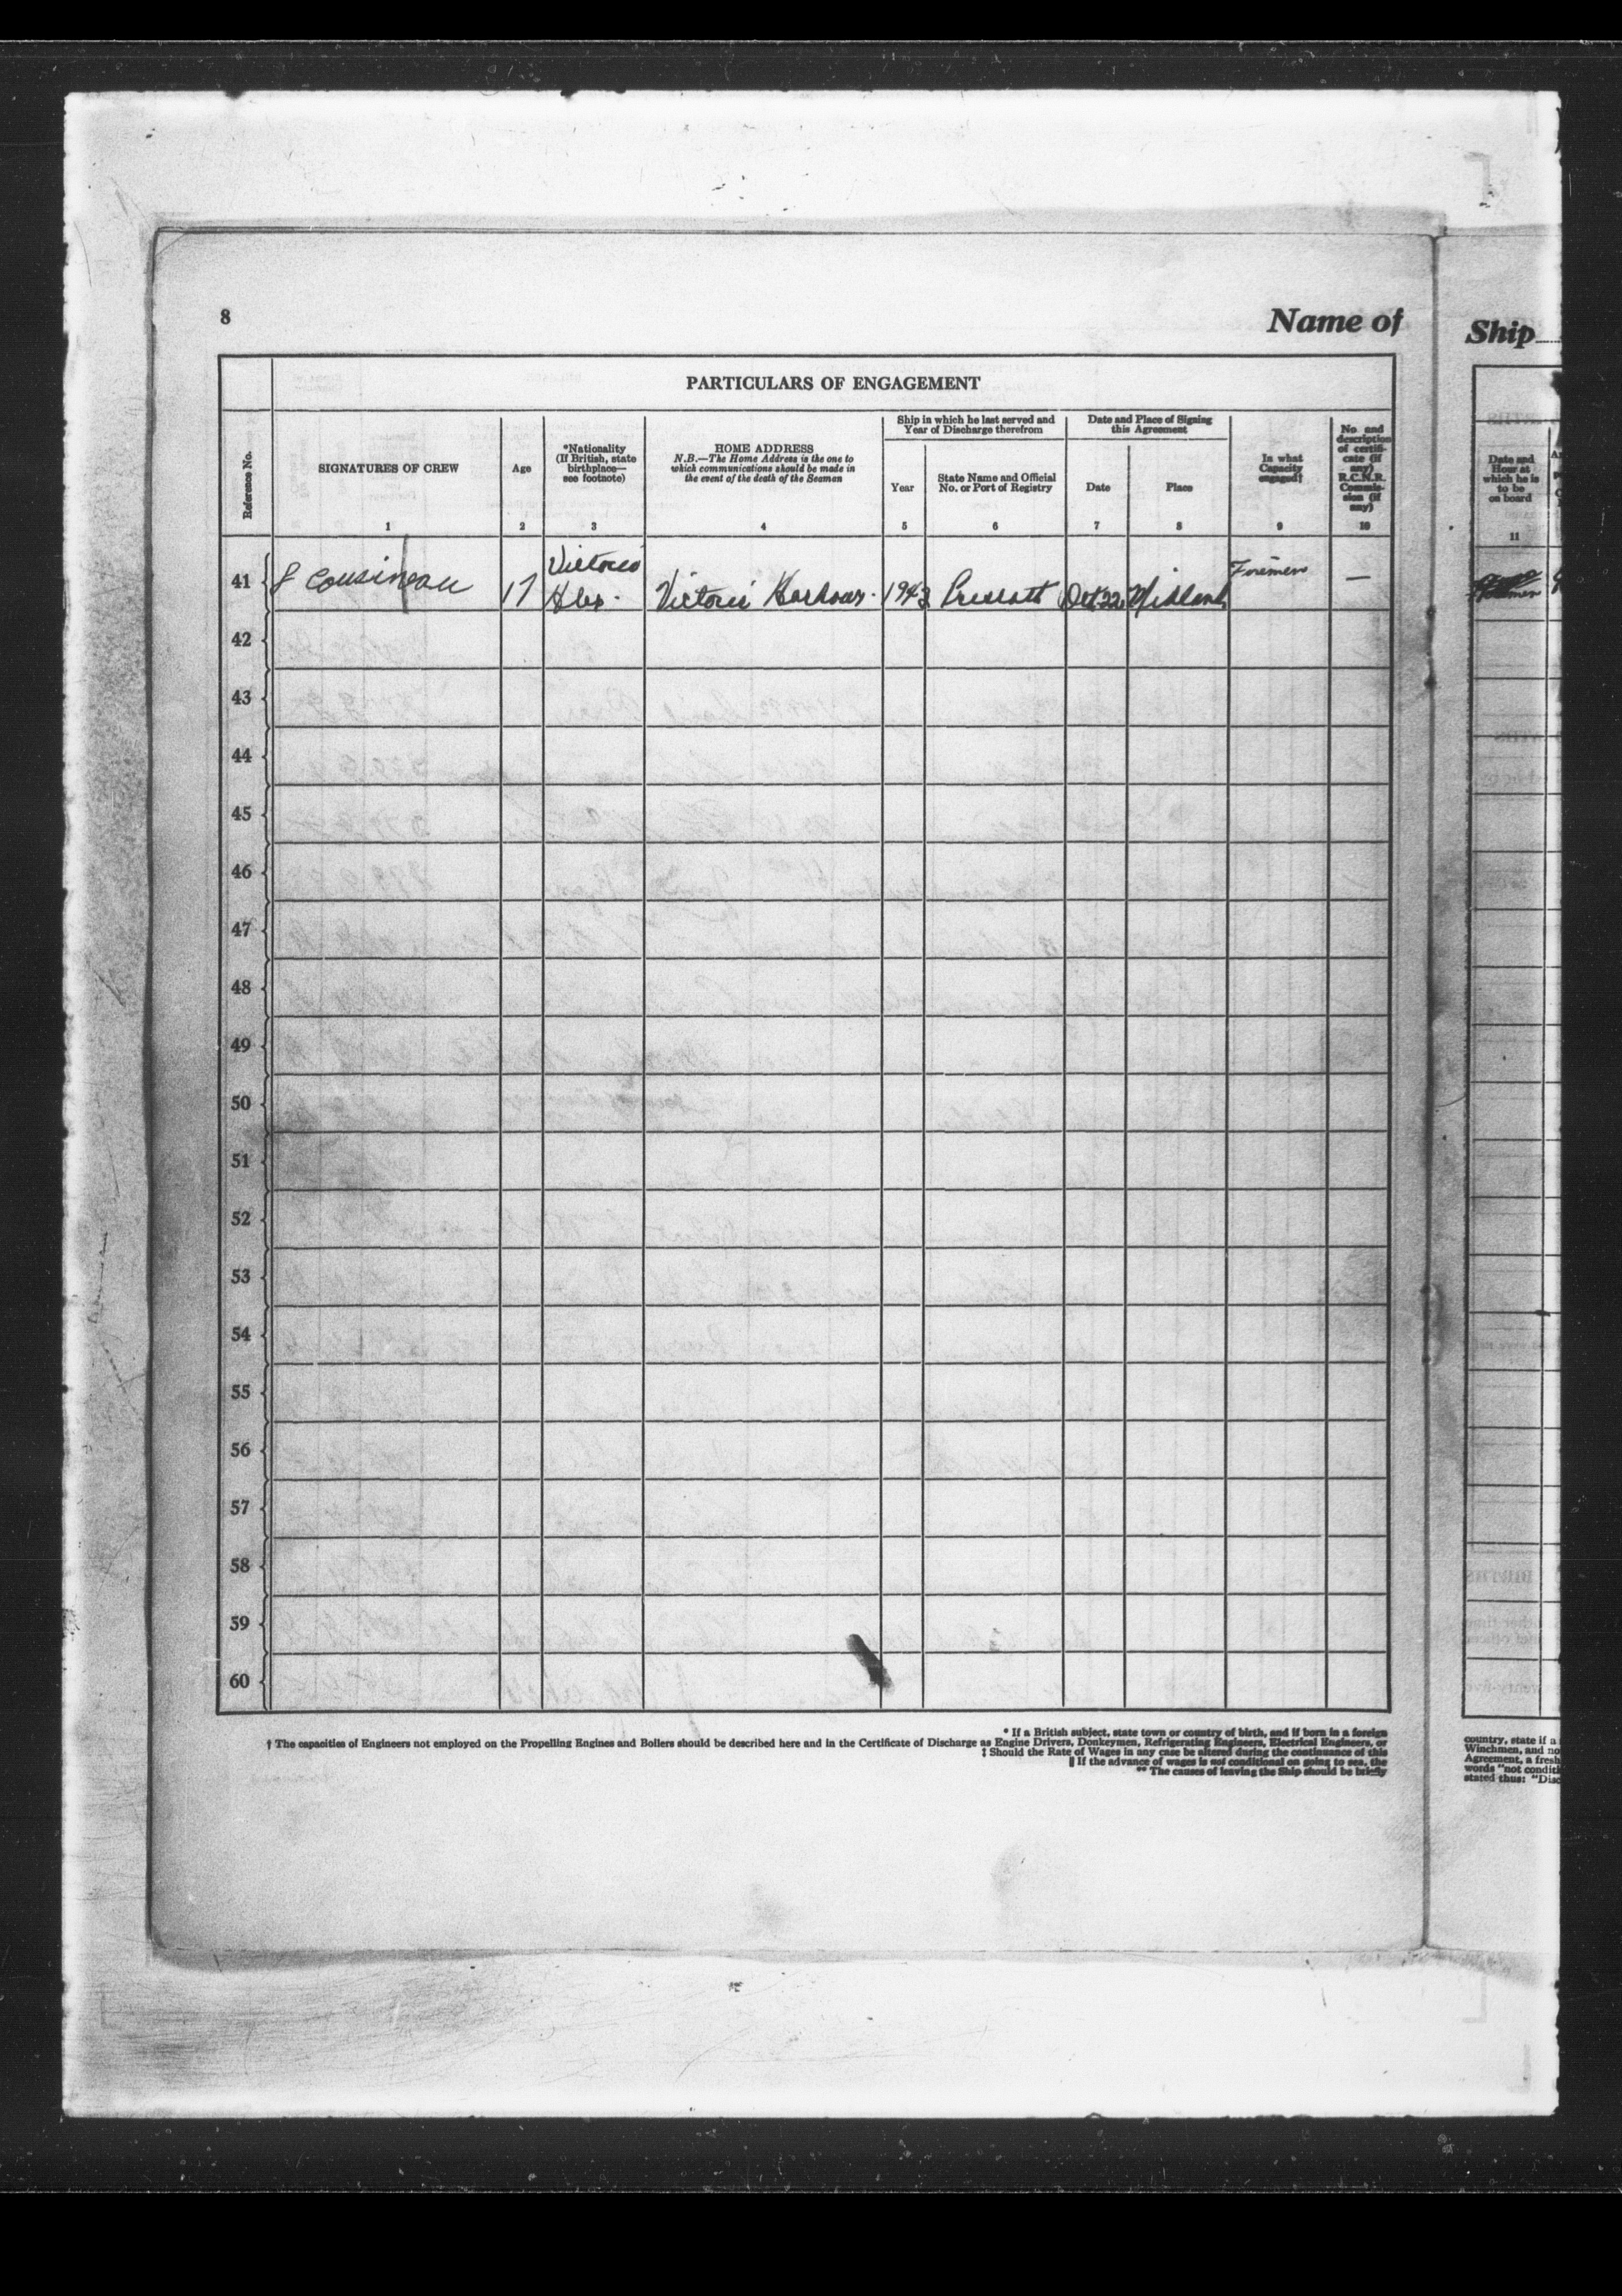 8
Name of
Ship
PARTICULARS OF ENGAGEMENT
Reference No.
SIGNATURES OF CREW
1
Age
2
*Nationality
(If British, state
birthplace—
see footnote)
3
HOME ADDRESS
N.B.—The Home Address is the one to
which communications should be made in
the event of the death of the Seaman
4
Ship in which he last served and
Year of Discharge therefrom
Year
5
State Name and Official
No. or Port of Registry
6
Date and Place of Signing
this Agreement
Date
7
Place
8
In what
Capacity
engaged†
9
No and
description
of certifi-
cate (if
any)
R.C.N.R.
Commis-
sion (if
any)
10
Date and
Hour at
which he is
to be
on board
11
41 Cousineau 17 Victoria Victoria Harbour 1943 Prescott Oct 22 Midland Firemen —
42
43
44
45
46
47
48
49
50
51
52
53
54
55
56
57
58
59
60
* If a British subject, state town or country of birth, and if born in a foreign
† The capacities of Engineers not employed on the Propelling Engines and Boilers should be described here and in the Certificate of Discharge as Engine Drivers, Donkeymen, Refrigerating Engineers, Electrical Engineers, or
‡ Should the Rate of Wages in any case be altered during the continuance of this
‖ If the advance of wages is not conditional on going to sea, the
** The causes of leaving the Ship should be briefly
country, state if a
Winchmen, and no
Agreement, a fresh
words "not condit
stated thus: "Disc